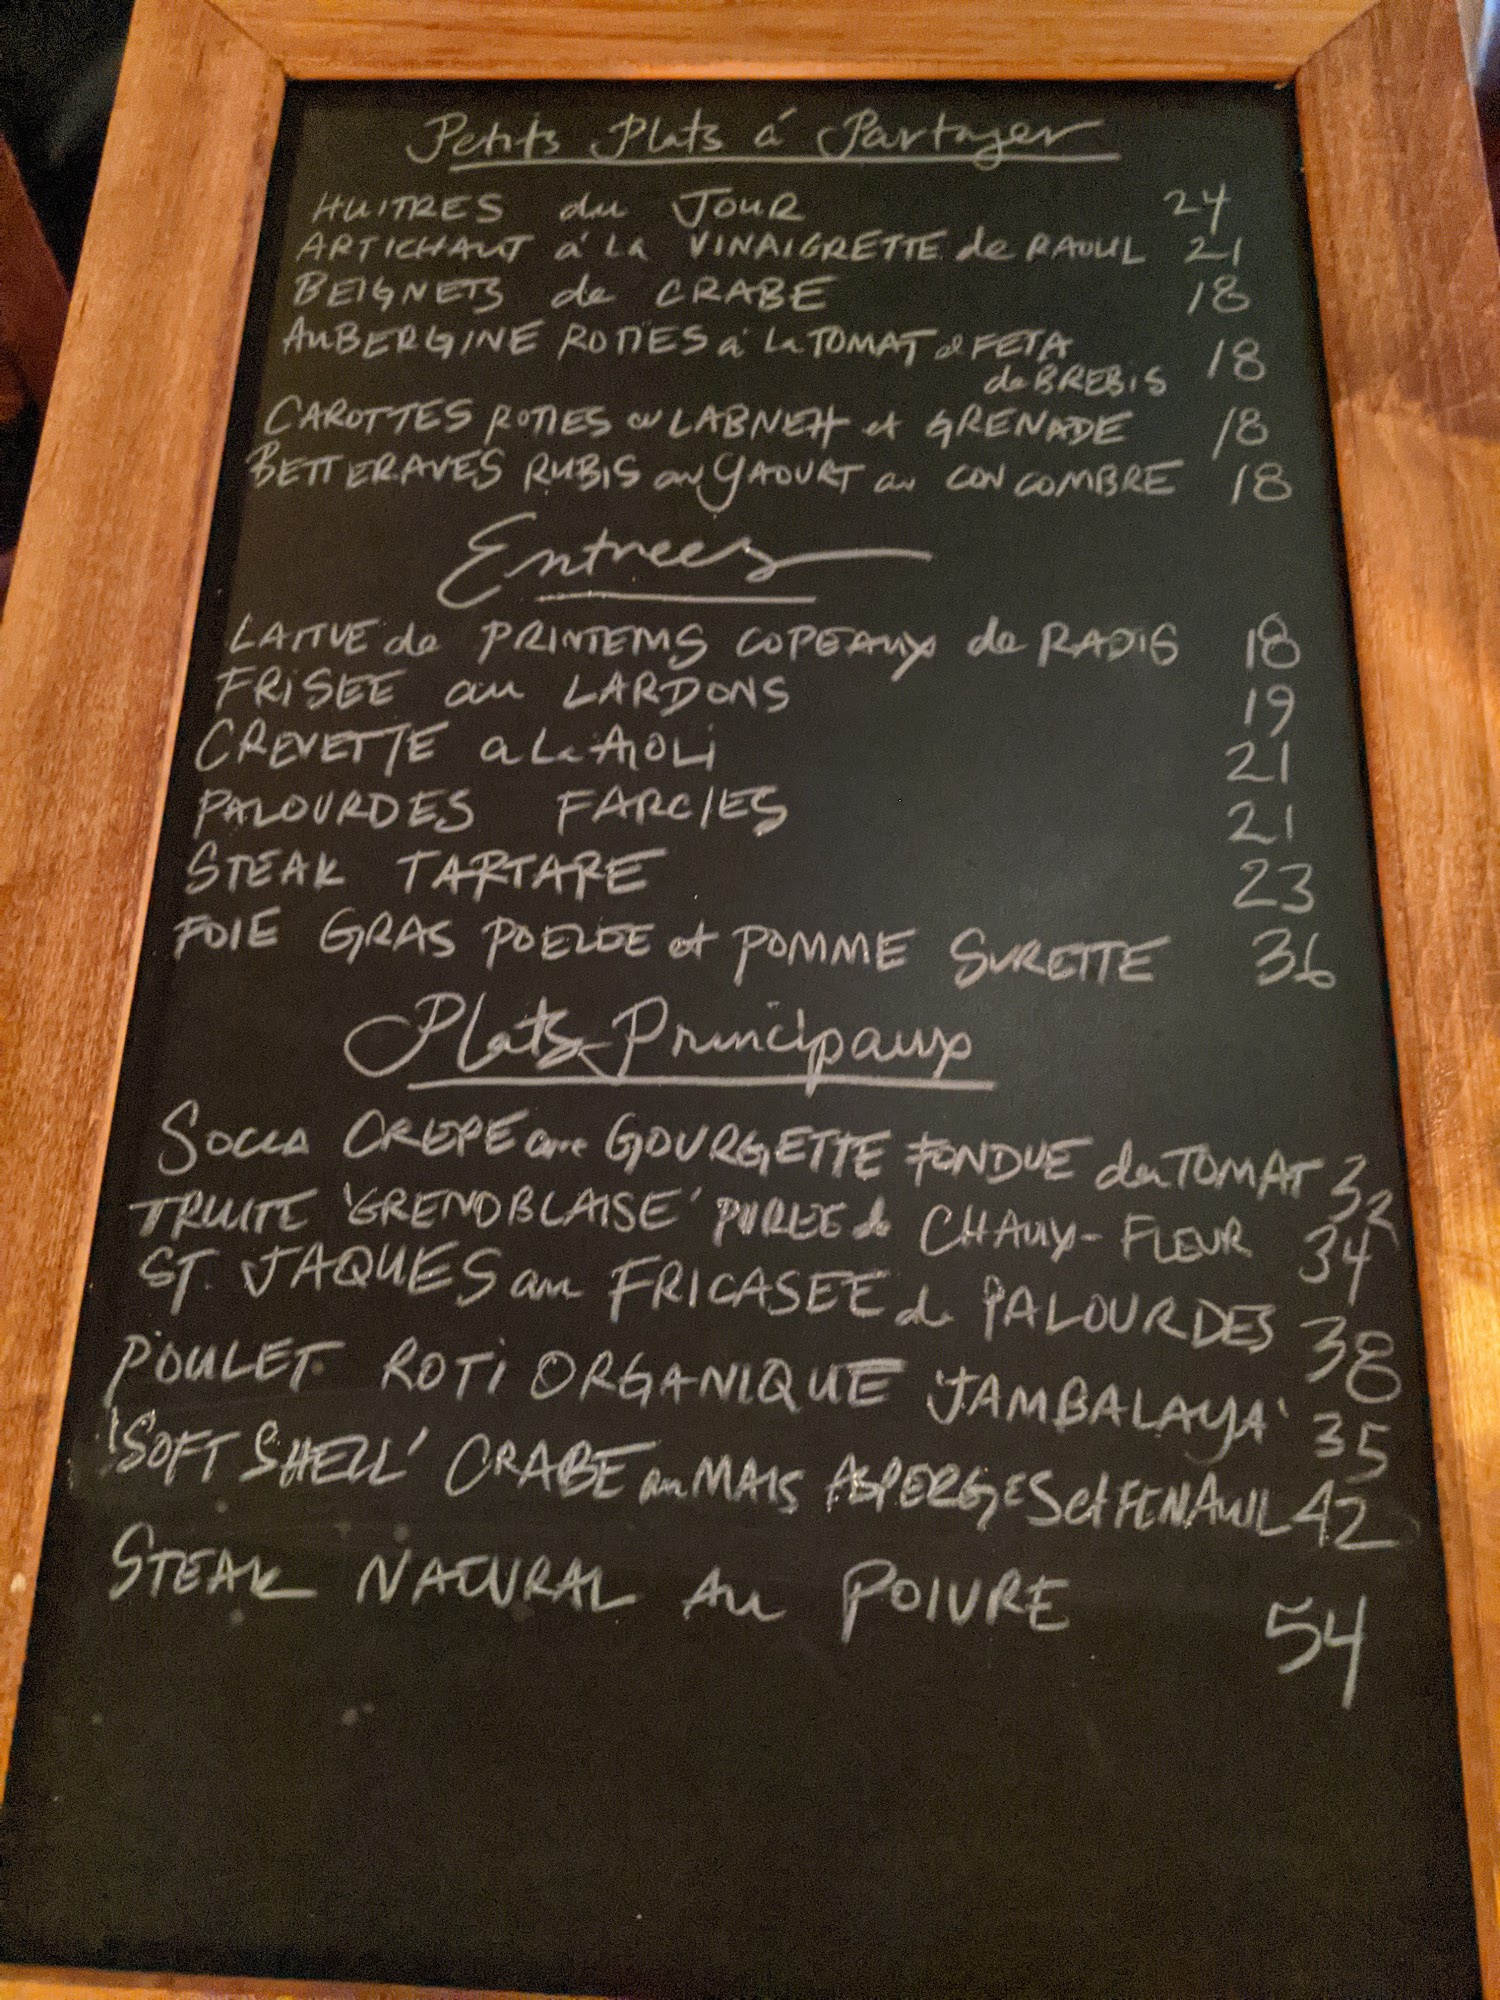 Petits Plats á Partager
HUITRES du JOUR 24
ARTICHAUT á La VINAIGRETTE de RAOUL 21
BEIGNETS de CRABE 18
AUBERGINE ROTIES á La TOMAT et FETA
de BREBIS 18
CAROTTES ROTIES au LABNEH et GRENADE 18
BETTERAVES RUBIS au YAOURT au CONCOMBRE 18
Entrees
LAITUE de PRINTEMS COPEAUX de RADIS 18
FRISEE au LARDONS 19
CREVETTE a La AIOLI 21
PALOURDES FARCIES 21
STEAK TARTARE 23
FOIE GRAS POELEE et POMME SURETTE 36
Plats Principaux
SOCCA CREPE avec GOURGETTE FONDUE de TOMAT 32
TRUITE 'GRENOBLAISE' PUREE de CHAUX-FLEUR 34
ST. JAQUES au FRICASEE de PALOURDES 38
POULET ROTI ORGANIQUE 'JAMBALAYA' 35
'SOFT SHELL' CRABE au MAIS ASPERGES et FENAUIL 42
STEAK NATURAL AU POIVRE 54